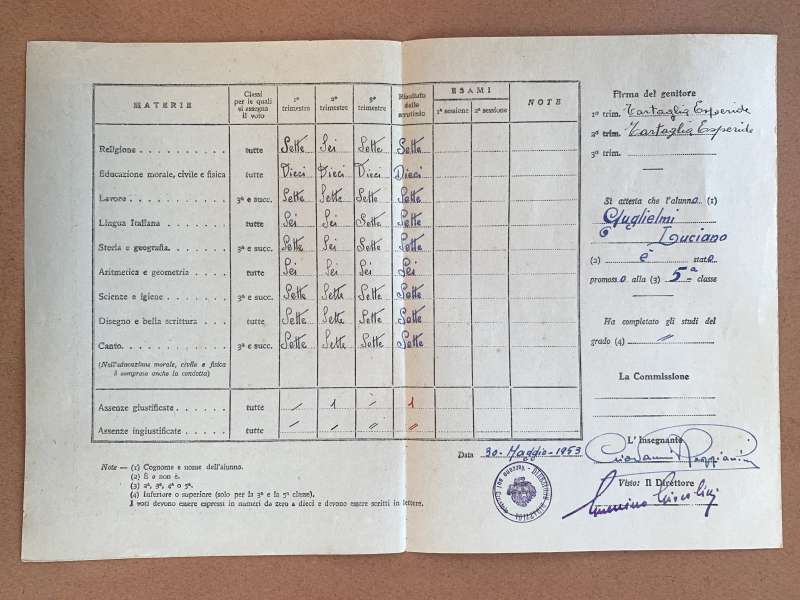 MATERIE Classi per le quali si assegna il voto 1º trimestre 2º trimestre 3º trimestre Risultato dello scrutinio ESAMI 1ª sessione 2ª sessione NOTE
Religione tutte Sette Sei Sette Sette
Educazione morale, civile e fisica tutte Dieci Dieci Dieci Dieci
Lavoro 3ª e succ. Sette Sette Sette Sette
Lingua Italiana tutte Sei Sei Sette Sette
Storia e geografia 3ª e succ. Sette Sei Sette Sette
Aritmetica e geometria tutte Sei Sei Sei Sei
Scienze e igiene 3ª e succ. Sette Sette Sette Sette
Disegno e bella scrittura tutte Sette Sette Sette Sette
Canto 3ª e succ. Sette Sette Sette Sette
(Nell'educazione morale, civile e fisica
è compresa anche la condotta)
Assenze giustificate tutte / 1 / 1
Assenze ingiustificate tutte
Note — (1) Cognome e nome dell'alunno.
(2) È o non è.
(3) 2ª, 3ª, 4ª o 5ª.
(4) Inferiore o superiore (solo per la 3ª e la 5ª classe).
I voti devono essere espressi in numeri da zero a dieci e devono essere scritti in lettere.
Firma del genitore
1º trim. Tartaglia Esperide
2º trim. Tartaglia Esperide
3º trim.
Si attesta che l'alunno (1)
Guglielmi
Luciano
(2) è stato
promosso alla (3) 5ª classe
Ha completato gli studi del
grado (4) //
La Commissione
Data 30-Maggio-1953
L'Insegnante
Giovanni
Visto: Il Direttore
DIREZIONE DIDATTICA